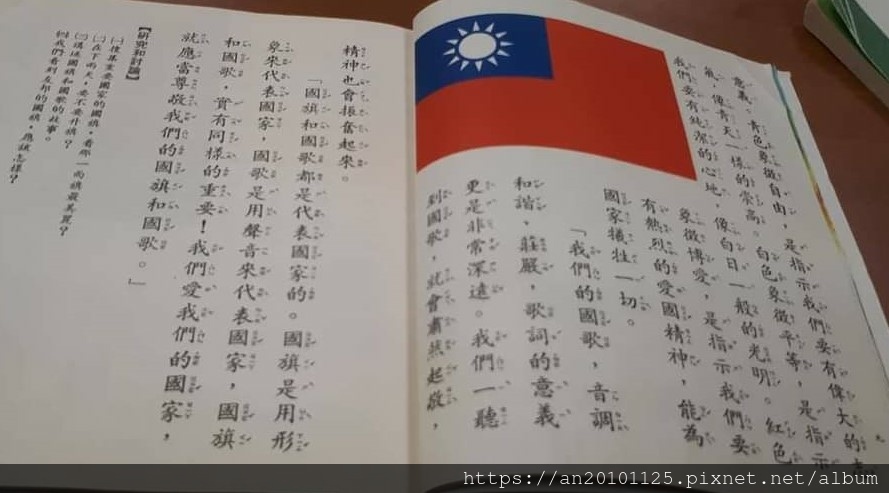 意義。青色象徵自由，是指示我們要有偉大的志
氣，像青天一樣的崇高。白色象徵平等，是指示
我們要有純潔的心地，像白日一般的光明。紅色
象徵博愛，是指示我們要
有熱烈的愛國精神，能為
國家犧牲一切。
「我們的國歌，音調
和諧、莊嚴，歌詞的意義
更是非常深遠。我們一聽
到國歌，就會肅然起敬，
精神也會振奮起來。
「國旗和國歌都是代表國家的。國旗是用形
象來代表國家，國歌是用聲音來代表國家，國旗
和國歌，實有同樣的重要！我們愛我們的國家，
就應當尊敬我們的國旗和國歌。」
【研究和討論】
㈠搜集重要國家的國旗，看那一面旗最美麗？
㈡在下雨天，要不要升旗？
㈢講述國旗和國歌的故事。
㈣我們看到友邦的國旗，應該怎樣？
https://an20101125.pixnet.net/album